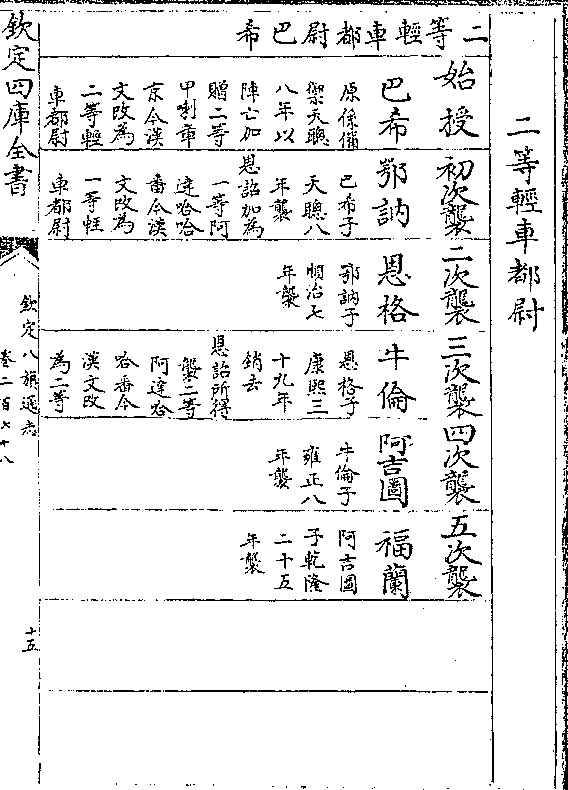 二等輕車都尉
二等輕車都尉巴希
始授
巴希
原係備
禦天聰
八年以
陣亡加
贈二等
甲喇章
京今漢
文改為
二等輕
車都尉
初次襲
鄂訥
巴希子
天聰八
年襲
恩詔加為
一等阿
達哈哈
番今漢
文改為
一等輕
車都尉
二次襲
恩格
鄂訥子
順治七
年襲
三次襲
牛倫
恩格子
康熙三
十九年
銷去
恩詔所得
襲二等
阿達哈
哈番今
漢文改
為二等
四次襲
阿吉圖
牛倫子
雍正八
年襲
五次襲
福蘭
阿吉圖
子乾隆
二十五
年襲
欽定四庫全書
欽定八旗通志
卷二百七十八
十五